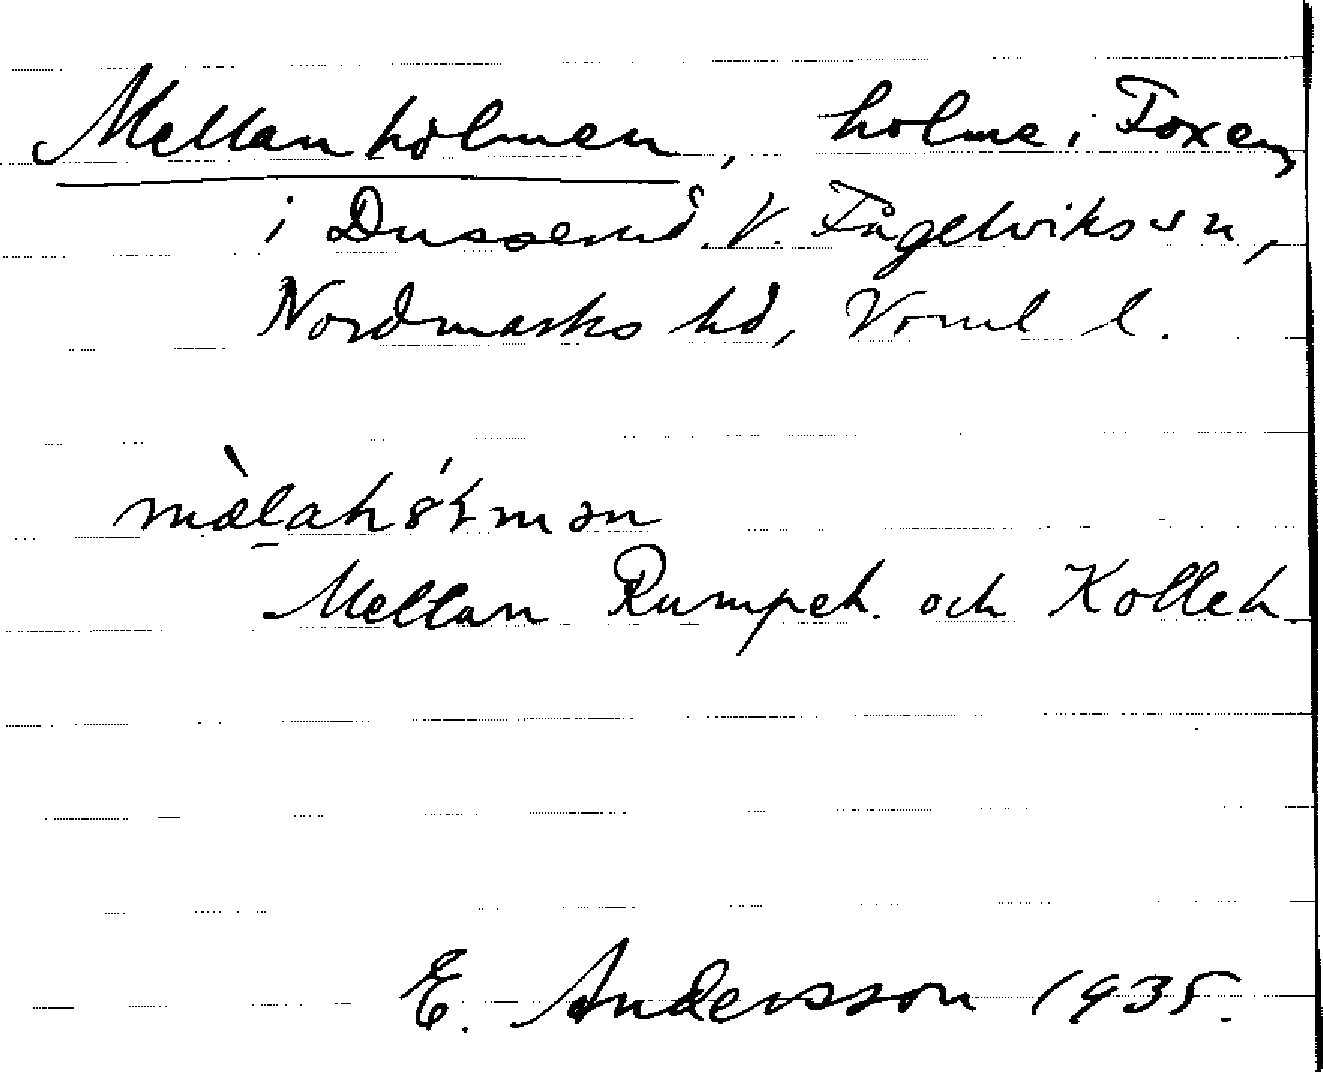 Mellanholmen, holme i Foxen
i Dusserud V. Fågelviks sn,
Nordmarks hd, Vrml l.
Mellan Rumpeh. och Kolleh.
E. Andersson 1935.